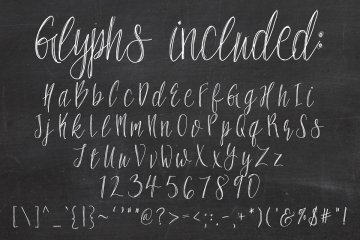 Glyphs included:
HaBbCcDdEeFfGgHhIi
JjKkLlMmNnOoPpQqRrSs
TtUuVvWwXxYyZz
1234567890
[\]^_`{|}~‘’“”@?>=<;:.-,+*)(‘&%$#"!